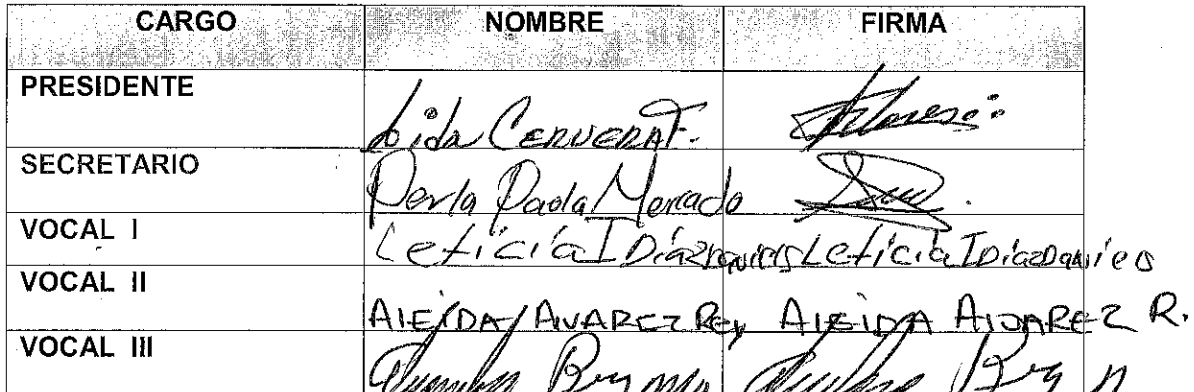 CARGO NOMBRE FIRMA
PRESIDENTE Lida Cervera F.
SECRETARIO Perla Paola Mercado
VOCAL I Leticia I Díaz Leticia I Díaz
VOCAL II AlEIDA ALVAREZ REy AlEIDA AlVAREZ R.
VOCAL III